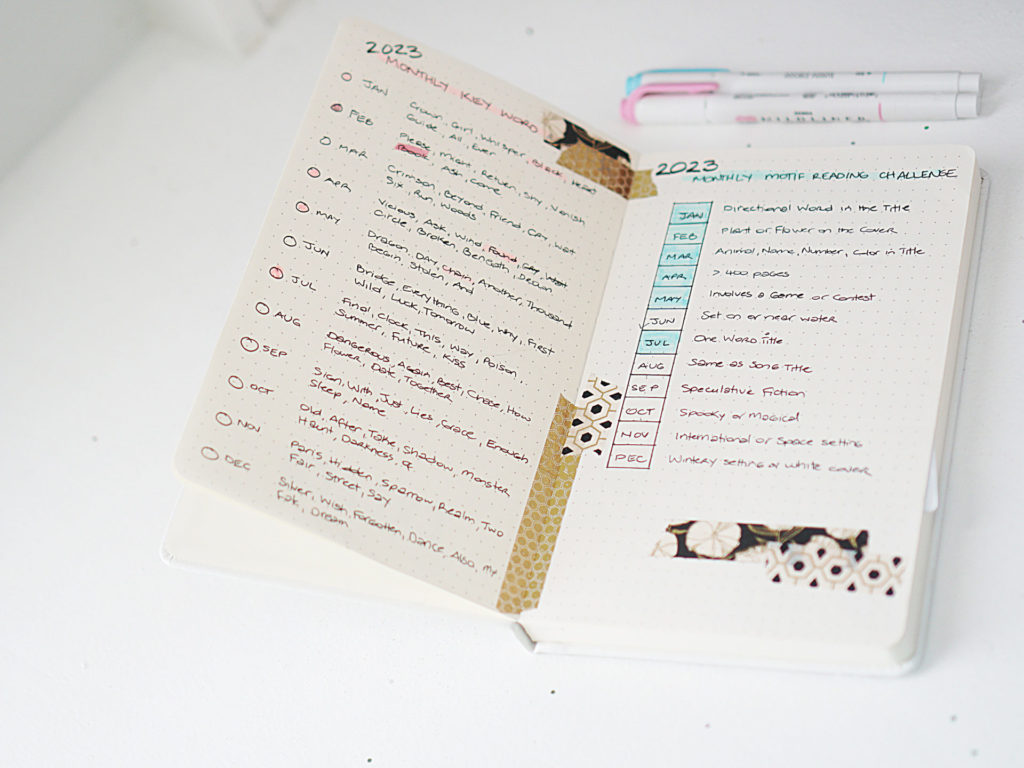 2023
MONTHLY KEY WORD
JAN Crown, Girl, Whisper, Black, Heart
Guide, All, Ever
FEB Please, Might, Return, Sky, Vanish
Book, Ask, Come
MAR Crimson, Beyond, Friend, Cat,
Six, Run, Woods
APR Vicious, Ask, Wind, Found,
Circle, Broken, Beneath,
MAY Dragon, DAY, Chain, Another, Thousand
Begin, Stolen, And
JUN Bridge, Everything, Blue, Why, First
Wild, Luck, Tomorrow
JUL Final, Clock, This, Way, Poison,
Summer, Future, Kiss
AUG Dangerous, Again, Best, Chase, How
Flower, Date, Together
SEP Sign, With, Just, Lies, Grace, Enough
Sleep, Name
OCT Old, After, Take, Shadow, Monster
Haunt, Darkness,
NOV Paris, Hidden, Sparrow, Realm, Two
Fair, Street, Say
DEC Silver, Wish, Forgotten, Dance, Also, My
Dream
MILDLINER
2023
MONTHLY MOTIF READING CHALLENGE
JAN Directional Word in the Title
FEB Plant or Flower on the Cover
MAR Animal, Name, Number, Color in Title
APR > 400 pages
MAY Involves a Game or Contest
JUN Set on or near water
JUL One Word Title
AUG Same as Song Title
SEP Speculative Fiction
OCT Spooky or Magical
NOV International or Space setting
DEC Wintery setting or white cover